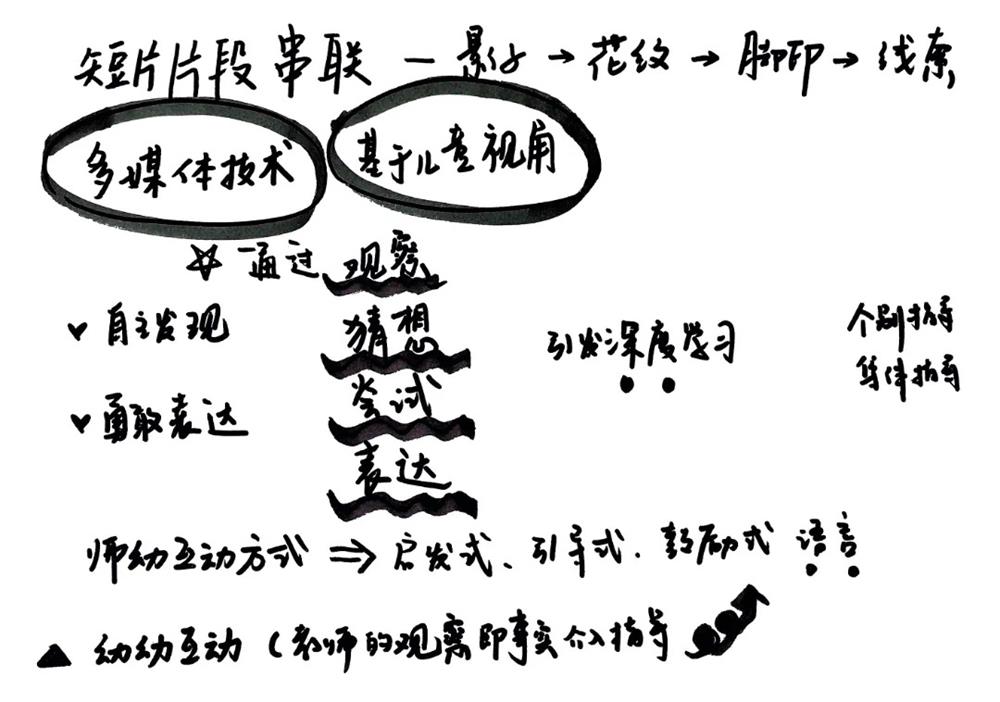 短片片段串联 — 影子 → 花纹 → 脚印 → 线索
多媒体技术 基于儿童视角
☆ 通过 观察
♥ 自主发现 猜想 引发深度学习 个别指导
尝试 集体指导
♥ 勇敢表达
表达
师幼互动方式 ⇒ 启发式、引导式、鼓励式 语言
▲ 幼幼互动（老师的观察即事实介入指导